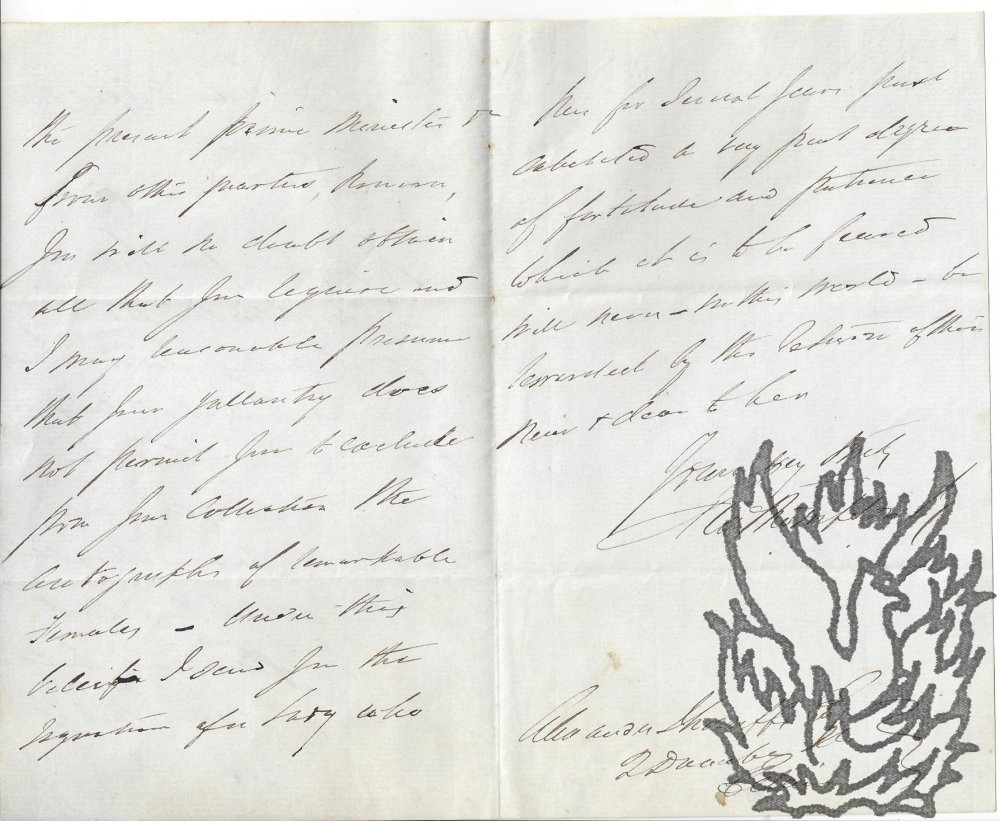 the present prime Minister or
From other quarters, however,
you will no doubt obtain
all that you require and
I may reasonable presume
that your gallantry does
not permit you to exclude
from your Collection the
Autographs of remarkable
Females – Under this
belief I send you the
signature of a Lady who
has for several years past
exhibited a very great degree
of fortitude and patience
which it is to be feared
will never – in this world – be
rewarded by the return of those
near & dear to her
Yours very truly
Alexander
2 December